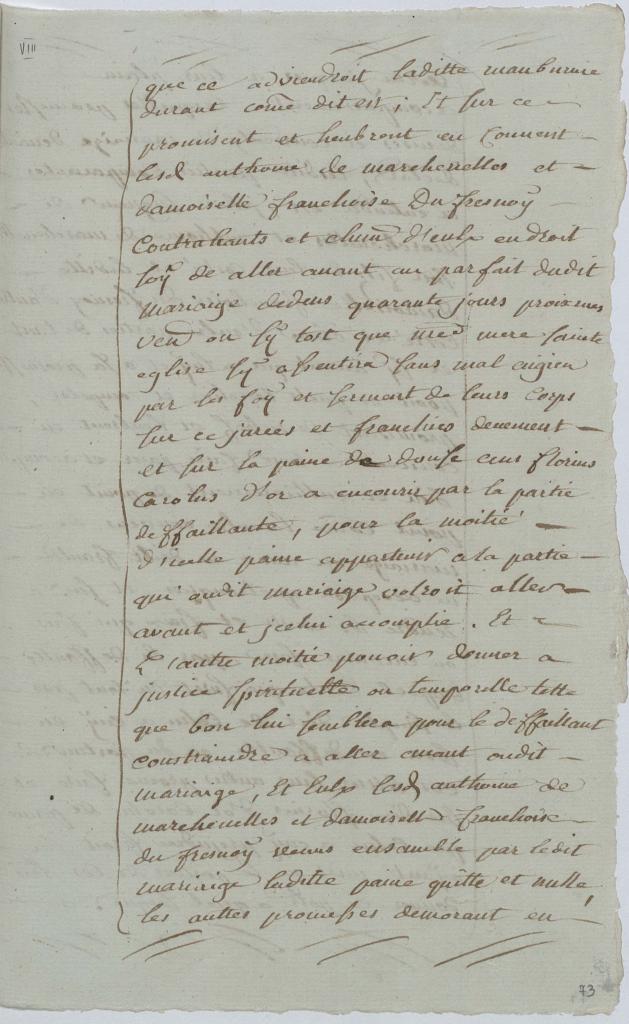 VIII
que ce adviendroit laditte manburnie
durant come dit est ; Et sur ce
promisent et heubront en Convent
lesd anthoine de marchenelles et
damoiselle franchoise Du fresnoÿ
Contrahants et chūn d'eulx endroit
soÿ de aller avant au parfait dudit
mariaige dedens quarante jours proixmes
ven ou sÿ tost que nre mere sainte
eglise sÿ assentira sans mal engien
par les foÿ et serment de leurs corps
sur ce jurées et franchies deuement
et sur la paine de douse cens florins
Carolus d'or a encourir par la partie
deffaillante, pour la moitié
d'icelle paine appartenir a la partie
qui audit mariaige volroit aller
avant et icelui accomplir. Et
L'autre moitié pouvoir donner a
justice spirituelle ou temporelle telle
que bon lui semblera pour le deffaillant
constraindre a aller avant audit
mariaige, Et eulx lesd anthoine de
marchenelles et damoiselle franchoise
du fresnoÿ venus ensamble par ledit
mariaige laditte paine quitte et nulle,
les autres promesses demorant en
73